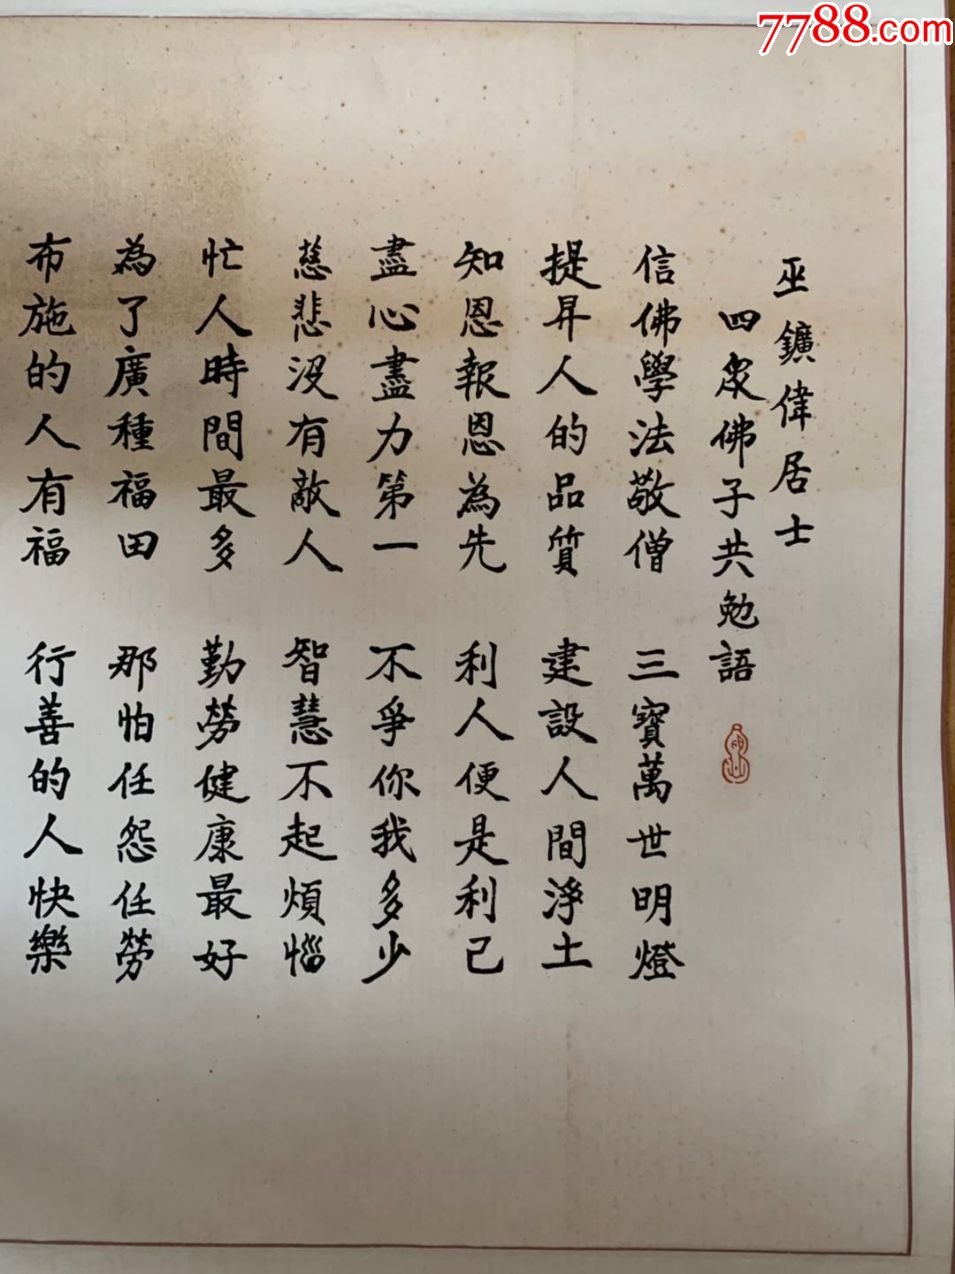 7788.com
巫鑛偉居士
四眾佛子共勉語
信佛學法敬僧 三寶萬世明燈
提昇人的品質 建設人間淨土
知恩報恩為先 利人便是利己
盡心盡力第一 不爭你我多少
慈悲沒有敵人 智慧不起煩惱
忙人時間最多 勤勞健康最好
為了廣種福田 那怕任怨任勞
布施的人有福 行善的人快樂